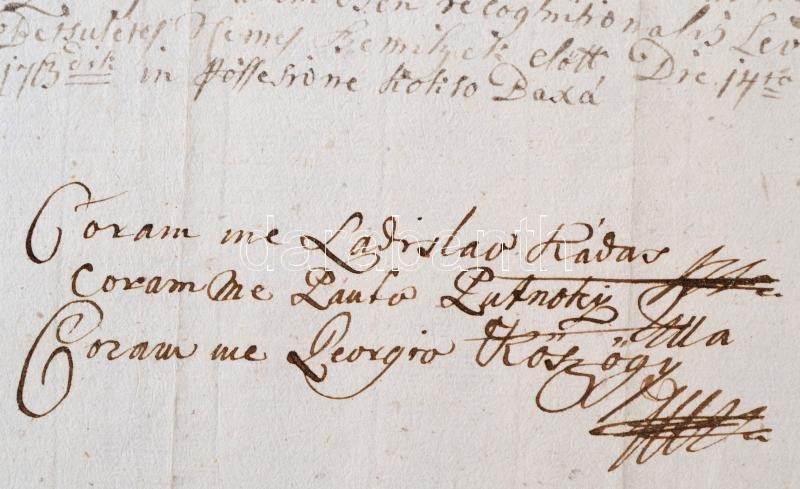 recognitionalis Lev
Betsületes Nemes Szemilyek előtt Die 14ta
in Possessione Daxá
Coram me Ladislao Kádas
Coram me Paulo Putnoky
Coram me Georgio Köszögy
darabanth